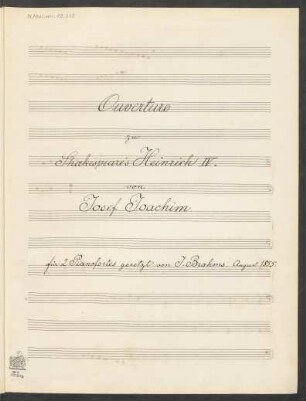 Ouverture
zu
Shakespeare's Heinrich IV.
von
Josef Joachim.
für 2 Pianofortes gesetzt von J. Brahms. August 1855.